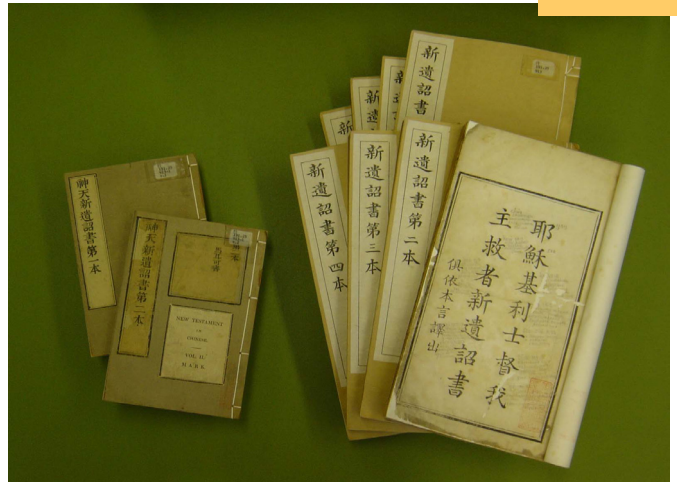 神天新遺詔書第一本
神天新遺詔書第二本
NEW TESTAMENT
IN
CHINESE.
VOL. II.
MARK.
新遺
新遺
新遺詔書
新遺詔書第四本
新遺詔書第三本
新遺詔書第二本
耶穌基利士督我
主救者新遺詔書
俱依本言譯出